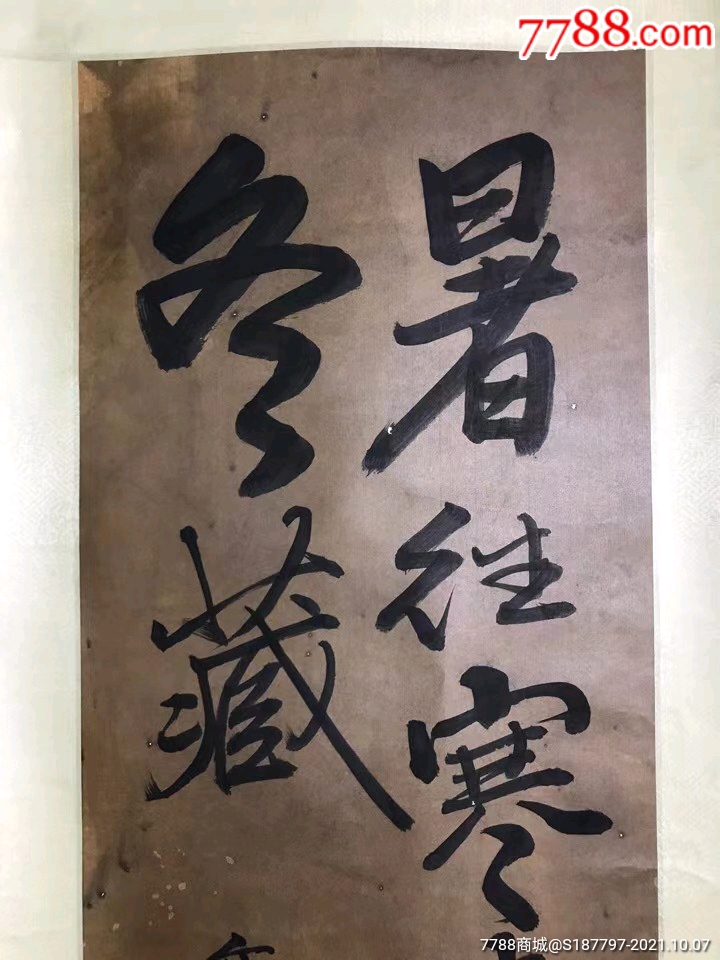 7788.com
暑往寒
冬藏
7788商城@S187797-2021.10.07